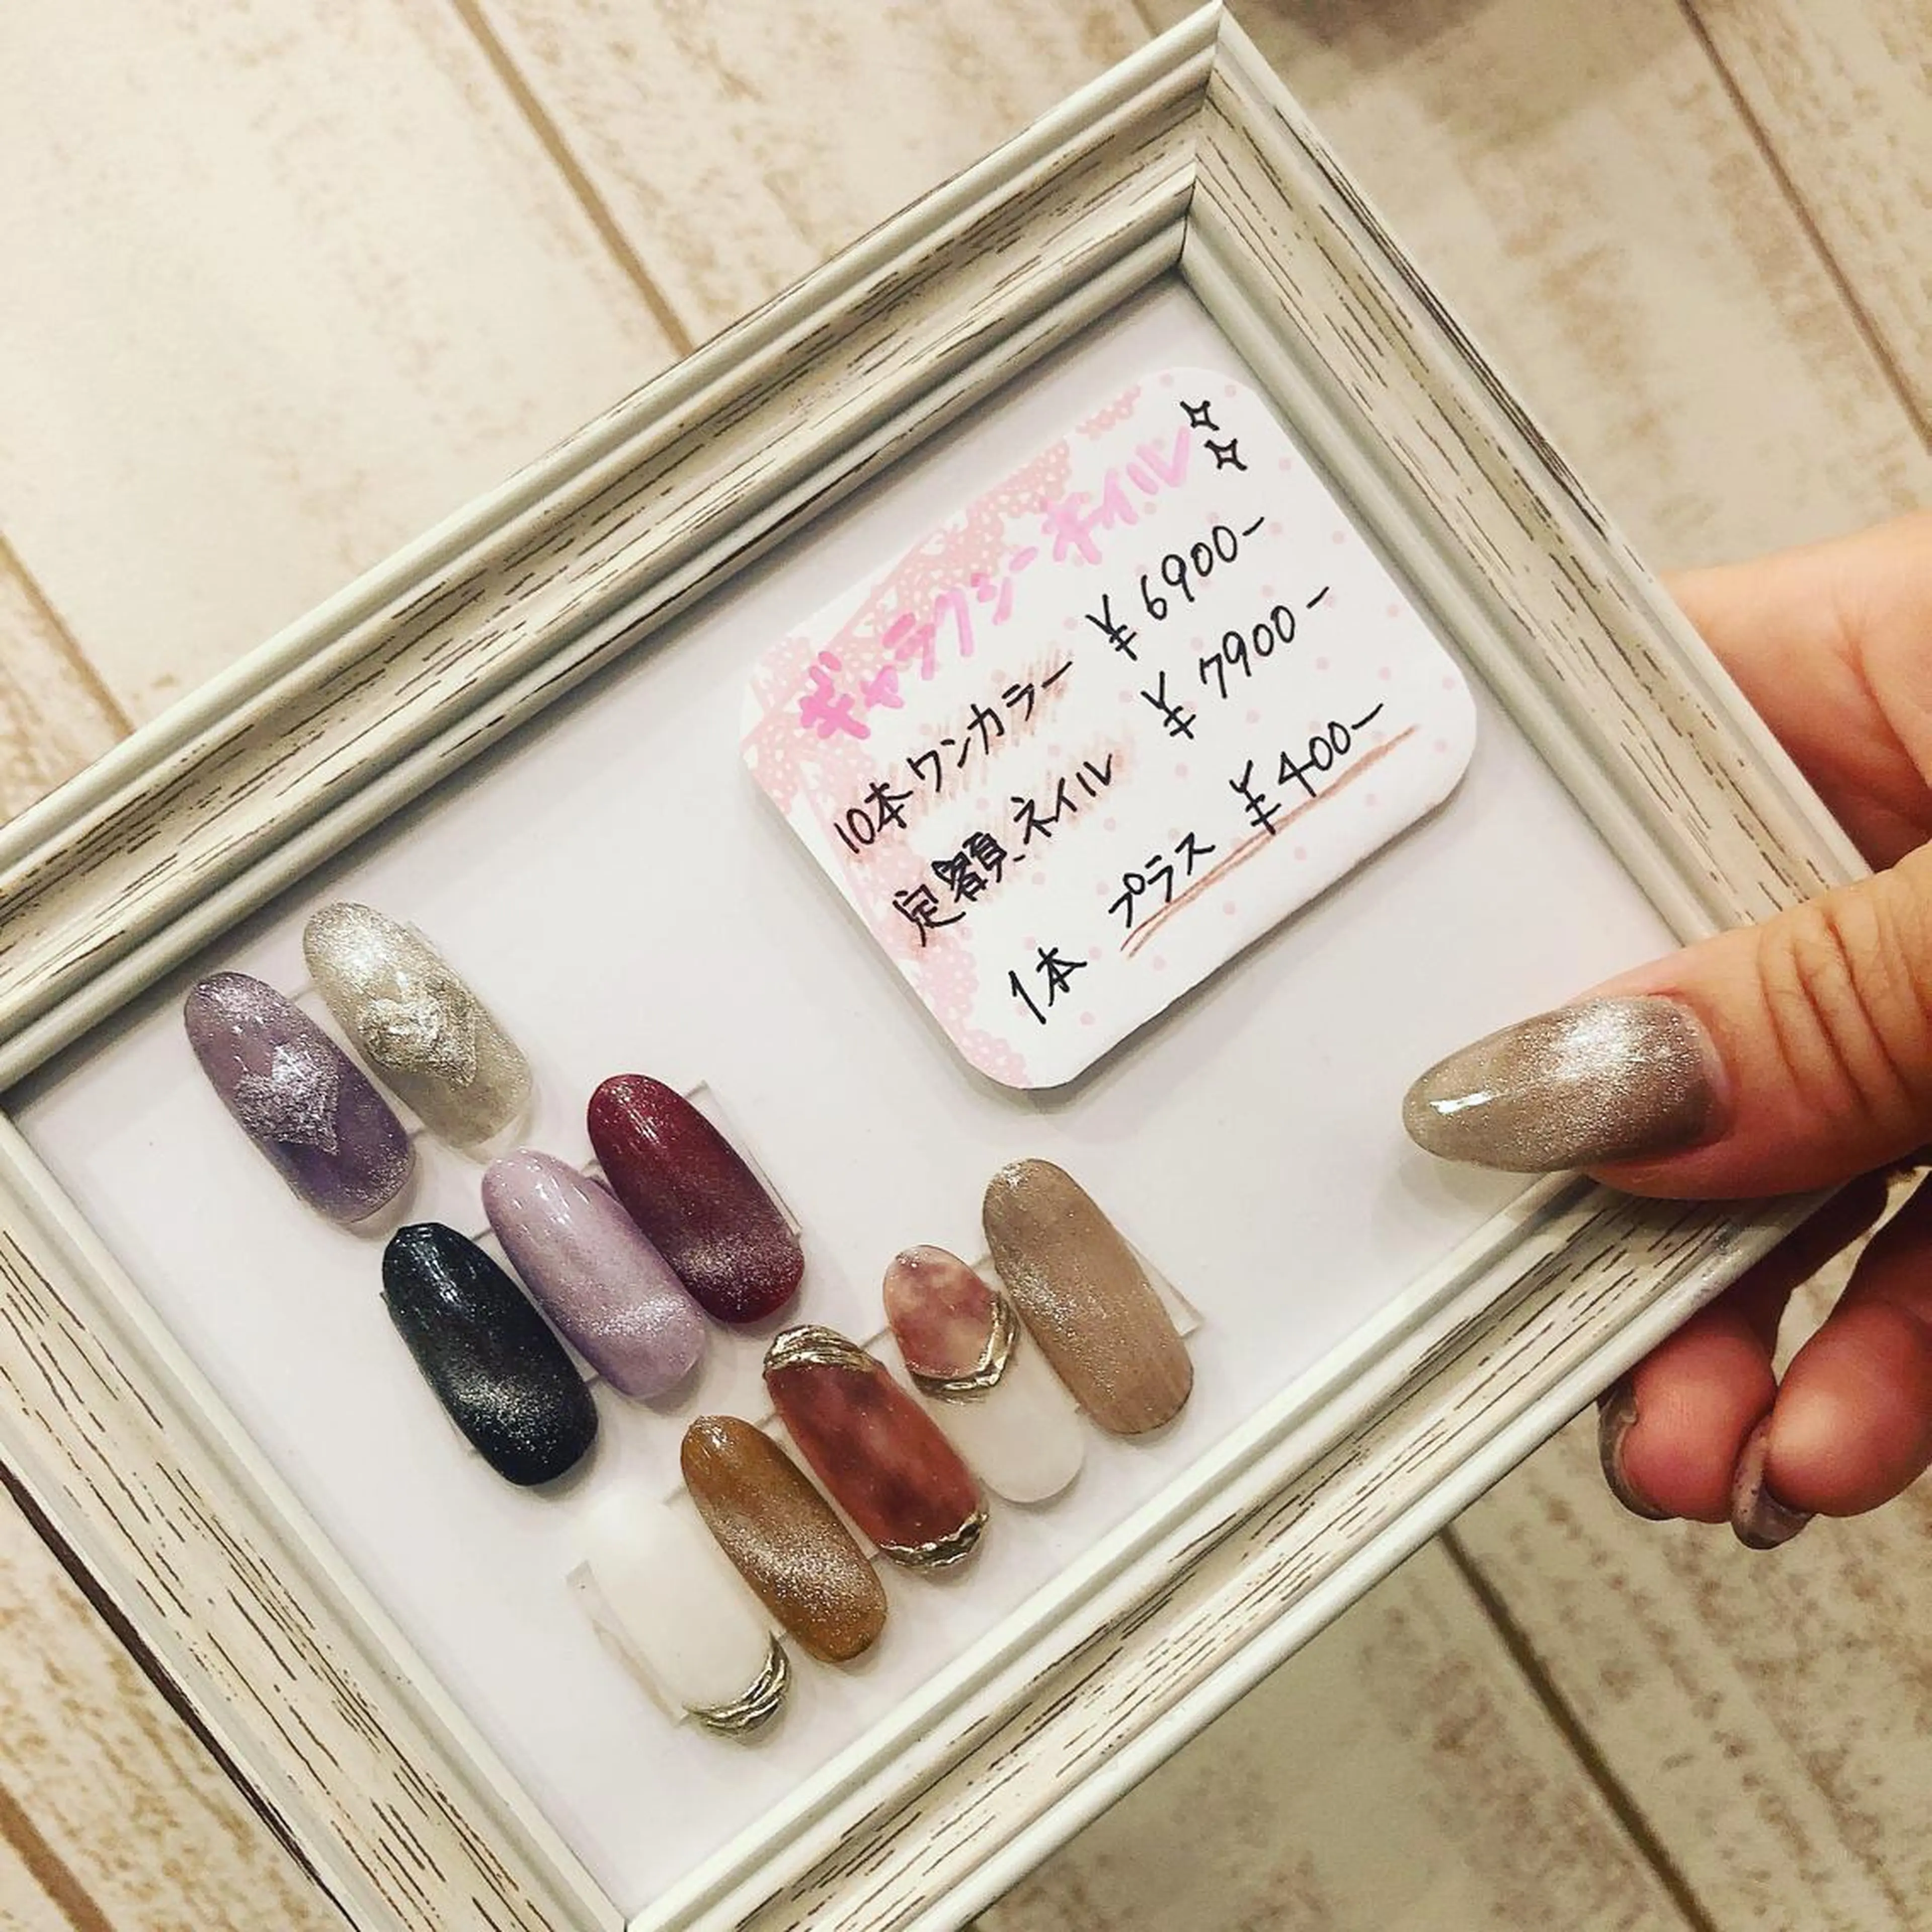 ギャラクシーネイル
10本ワンカラー ¥6900-
定額ネイル ¥7900-
1本 プラス ¥400-